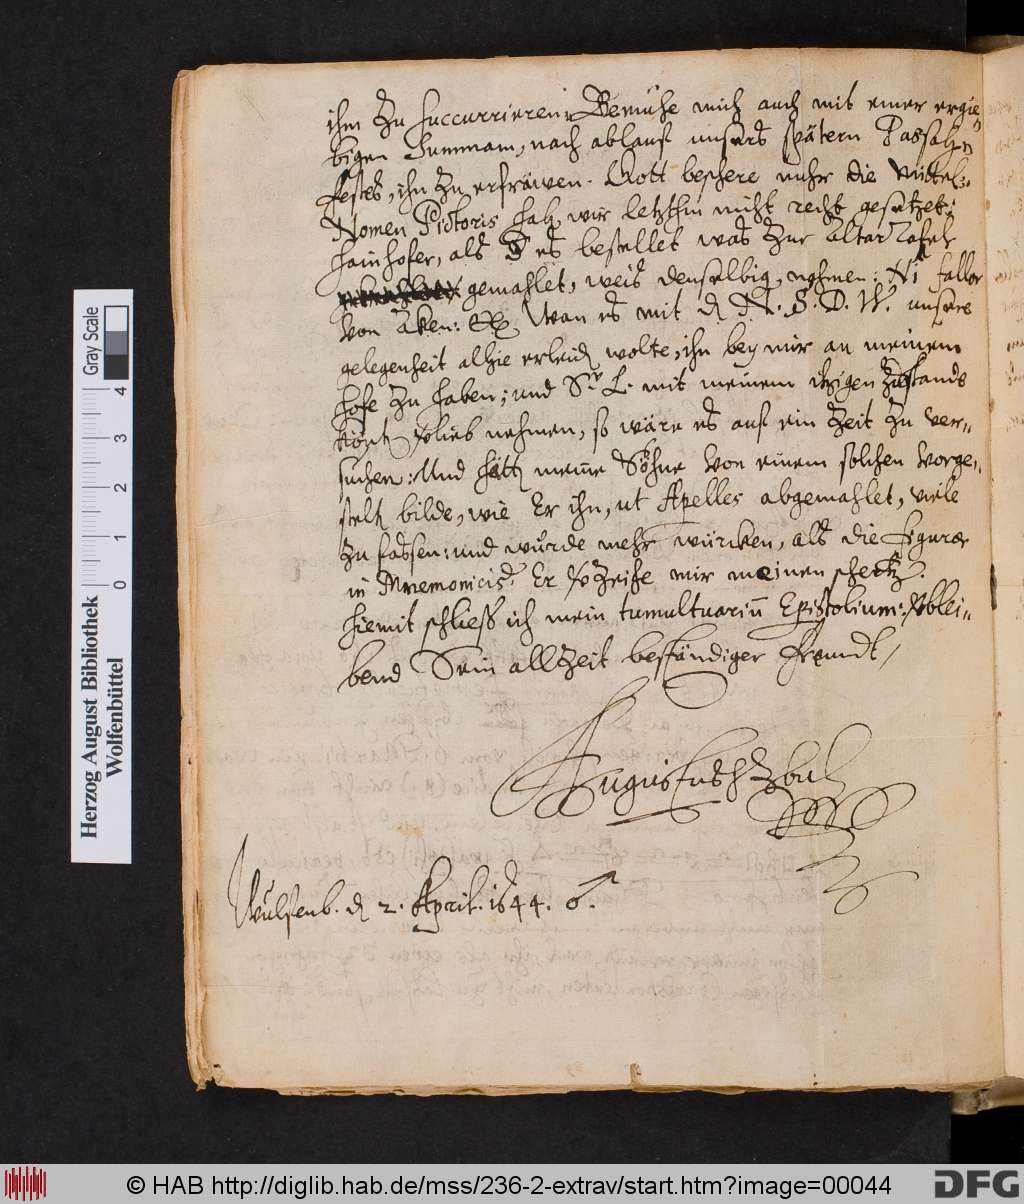 ihm zu succurriren. Bemühe mich auch mit einer ergie-
bigen Summam, nach ablauf unsers spätern Passah-
festes, ihn zu erfräwen. Gott beschere nuhr die mittel.
Nomen Pictoris hab wir letzthin nicht recht gesetzet:
Hainhofer, als Er es bestellet was zur altar Tafel
gemahlet, weis denselbig nehmen:
von Aken: Wan es mit d. N. S. D. W. unsere
gelegenheit alhie erleid wolte, ihn bey mir an meinem
hofe zu haben; und Sr. L. mit meinem itzigen
vorlieb nehmen, so wäre es auf ein Zeit zu ver-
suchen: Und hätt meine Söhne von einem solchen vorge-
stelt bilde, wie Er ihn, ut Apelles abgemahlet, viele
zu fassen: und würde mehr würcken, als die figurae
in Mnemonicis. Er verzeihe mir meinen schertz.
Hiemit schließ ich mein tumultuariu Epistolium: verblei-
bend Sein allzeit beständiger freundt,
Augustus H Z B u L
Wulfenb. d 2. April. 1644. ♂.
Herzog August Bibliothek
Wolfenbüttel
Gray Scale
0 1 2 3 4
© HAB http://diglib.hab.de/mss/236-2-extrav/start.htm?image=00044
DFG